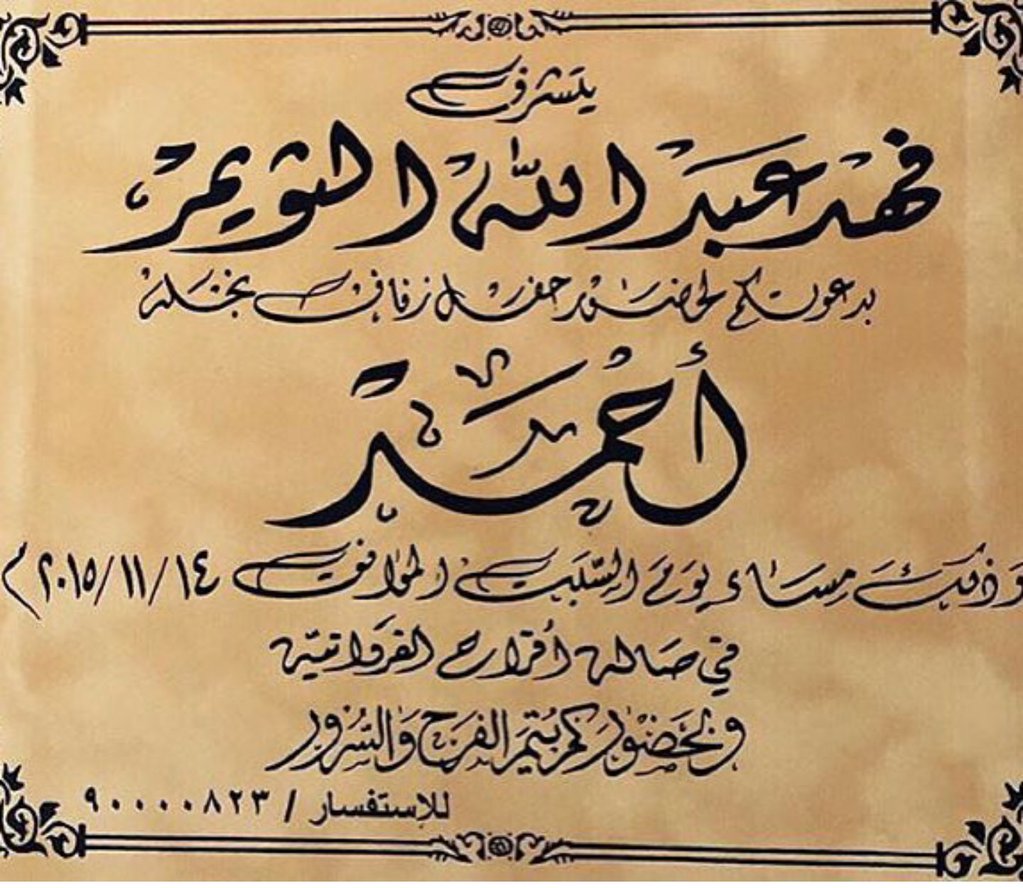 يتشرف
فهد عبدالله الثويمر
بدعوتكم لحضور حفل زفاف نجله
أحمد
وذلك مساء يوم السبت الموافق ٢٠١٥/١١/١٤م
في صالة أفراح الفروانية
وبحضوركم يتم الفرح والسرور
للإستفسار / ٩٠٠٠٠٨٢٣